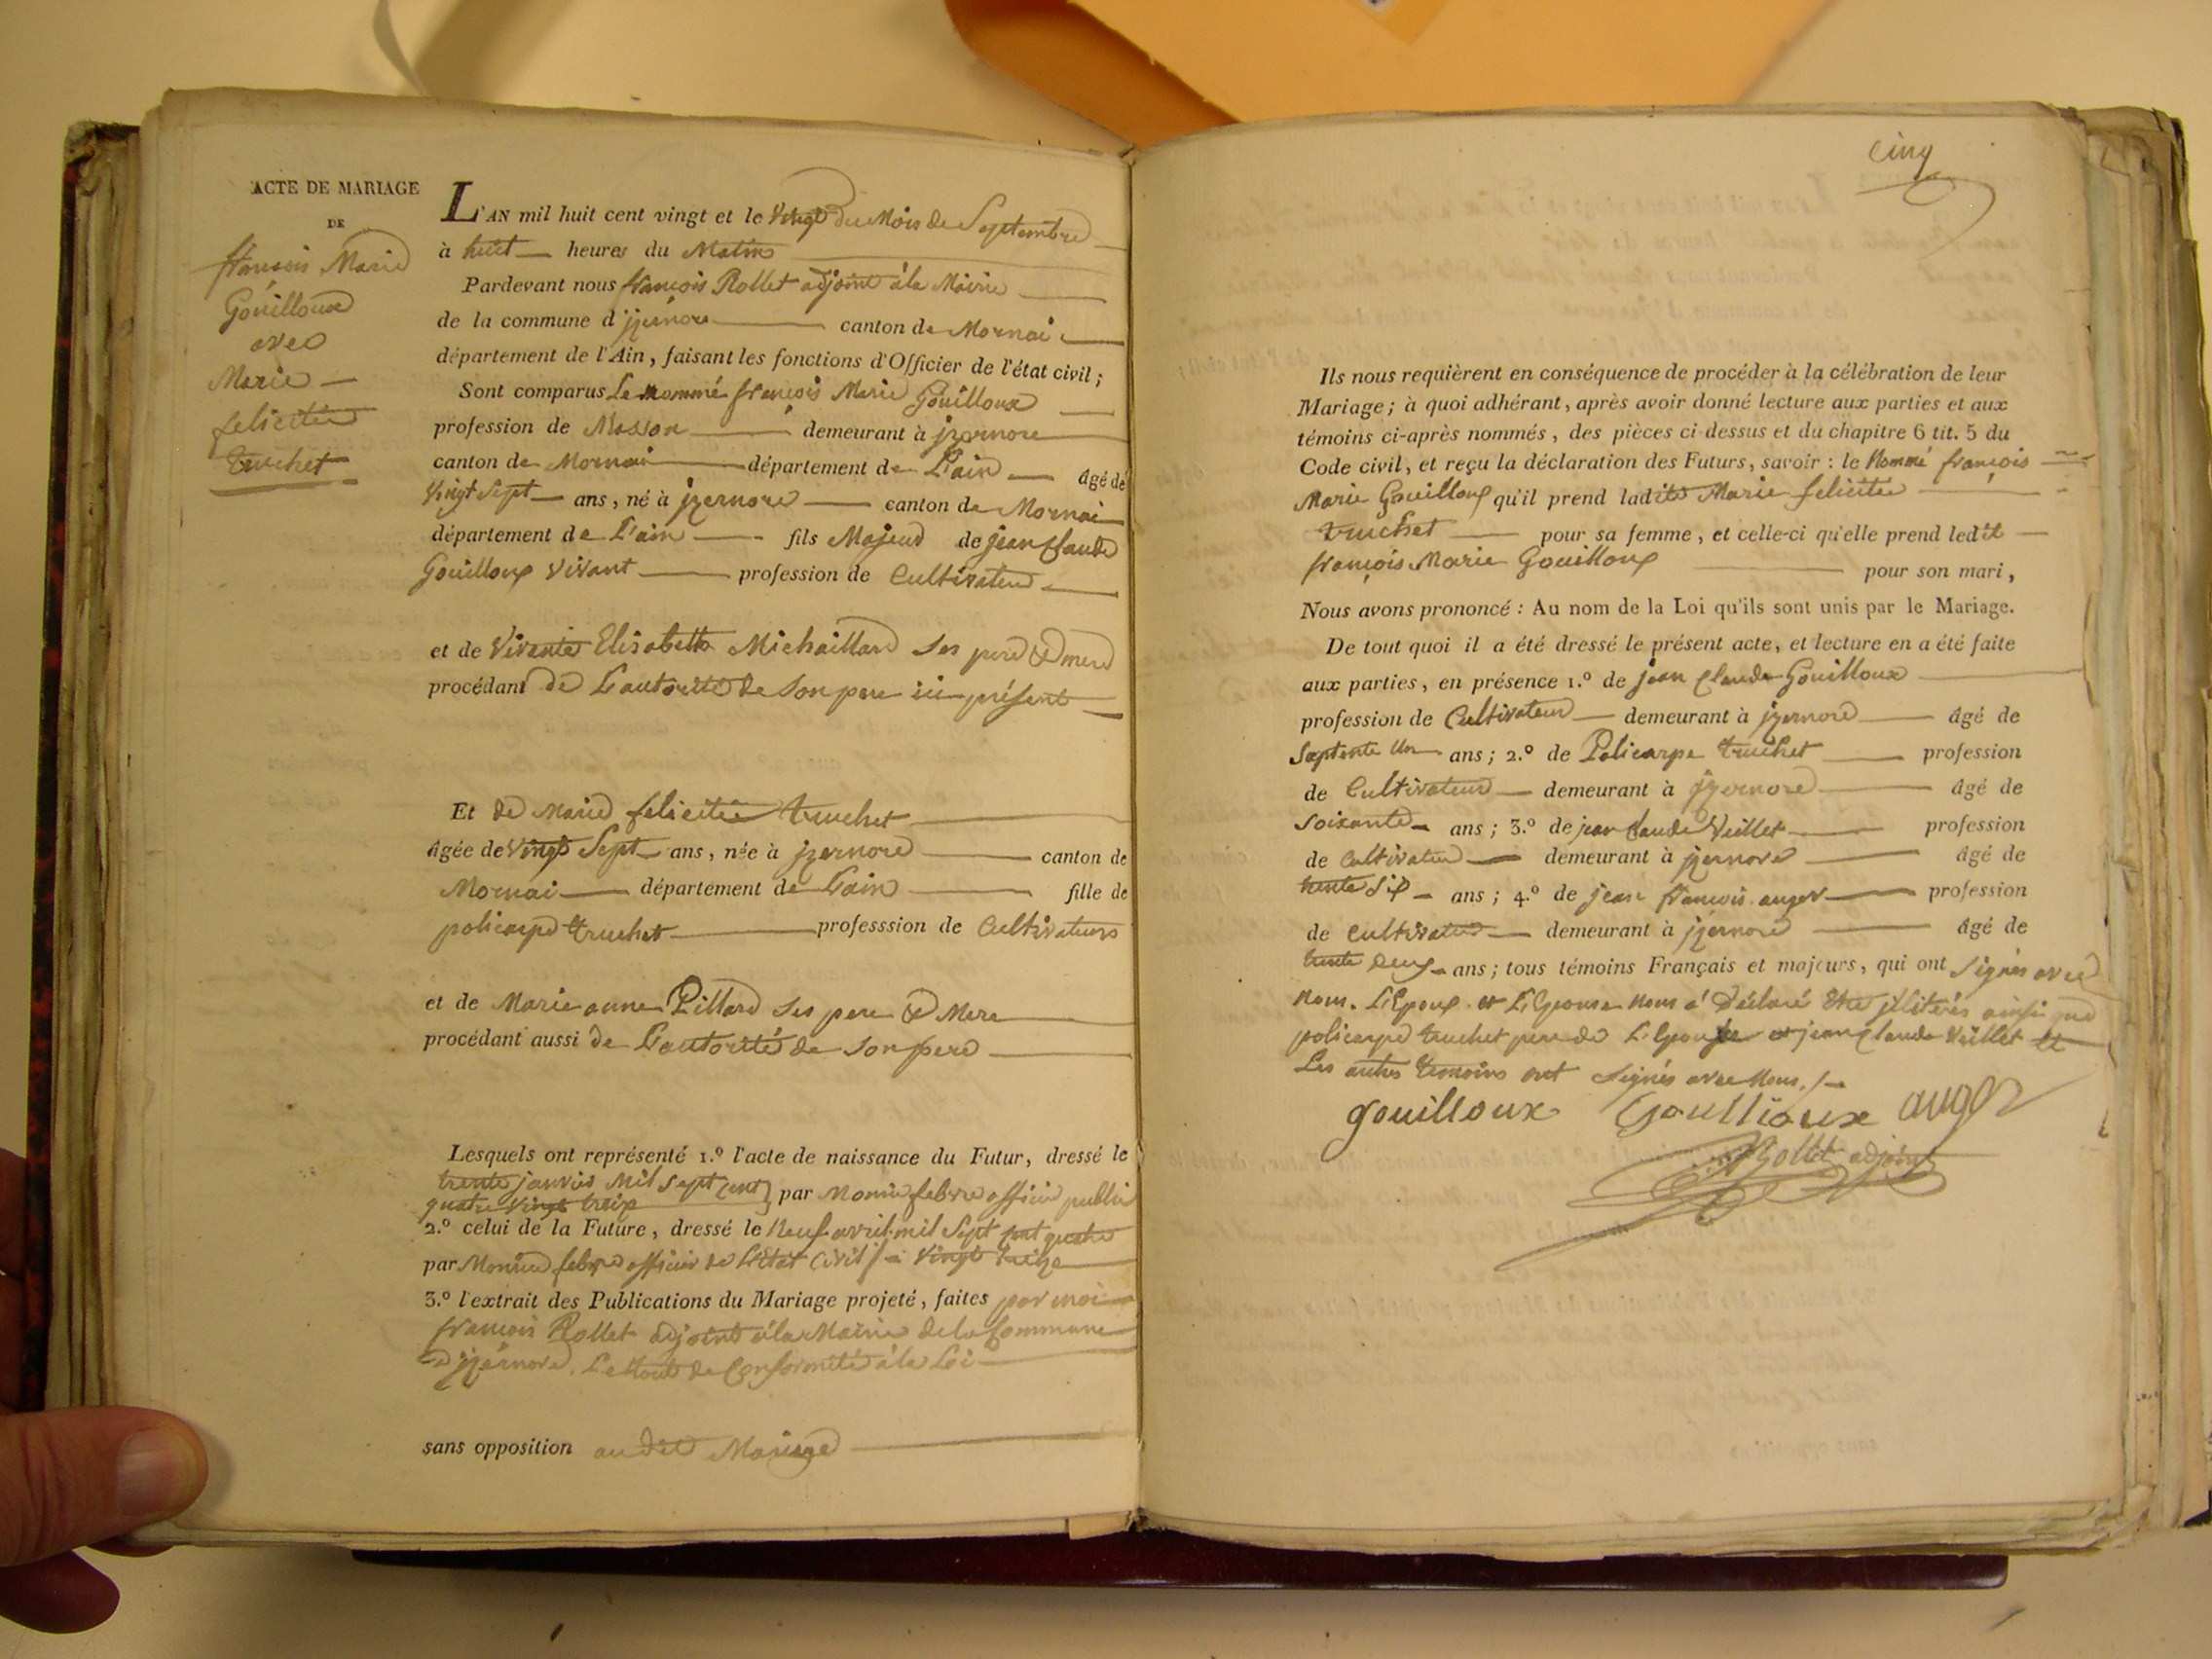 ACTE DE MARIAGE
DE
françois Marie
Goüilloux
avec
Marie
felicitée
truchet
L'AN mil huit cent vingt et le Vingt du Mois de Septembre
à huit heures du Matin
Pardevant nous françois Rollet adjoint à la Mairie
de la commune d'jzernore canton de Mornai
département de l'Ain, faisant les fonctions d'Officier de l'état civil;
Sont comparus Le nommé françois Marie Goüilloux
profession de Masson demeurant à jzernore
canton de Mornai département de L'ain âgé de
Vingt Sept ans, né à jzernore canton de Mornai
département de L'ain fils Majeur de jean Claude
Gouilloux Vivant profession de Cultivateur
et de Vivante Elisabette Michaillard Ses pere & mere
procédant de L'autorité de Son pere ici présent
Et de Marie felicitée truchet
âgée de Vingt Sept ans, née à jzernore canton de
Mornai département de L'ain fille de
policarpe truchet professsion de Cultivateurs
et de Marie anne Pillard Ses pere & Mere
procédant aussi de L'autorité de Son pere
Lesquels ont représenté 1.º l'acte de naissance du Futur, dressé le
trente janvier Mil Sept Cent
quatre Vingt treize par Monin febvre officier public
2.º celui de la Future, dressé le Neuf avril mil Sept Cent quatre
par febvre officier de L'état Civil /. Vingt treize
3.º l'extrait des Publications du Mariage projeté, faites par moi
françois Rollet adjoint à la Mairie de la Commune
d'jzernore. Le tout de Conformité à la Loi
sans opposition au dit Mariage
Cinq
Ils nous requièrent en conséquence de procéder à la célébration de leur
Mariage; à quoi adhérant, après avoir donné lecture aux parties et aux
témoins ci-après nommés, des pièces ci-dessus et du chapitre 6 tit. 5 du
Code civil, et reçu la déclaration des Futurs, savoir: le Nommé françois
Marie Gouilloux qu'il prend ladite Marie felicitée
truchet pour sa femme, et celle-ci qu'elle prend ledit
françois Marie Gouilloux pour son mari,
Nous avons prononcé: Au nom de la Loi qu'ils sont unis par le Mariage.
De tout quoi il a été dressé le présent acte, et lecture en a été faite
aux parties, en présence 1.º de jean Claude Gouilloux
profession de Cultivateur demeurant à jzernore âgé de
Septente Un ans; 2.º de Policarpe truchet profession
de Cultivateur demeurant à jzernore âgé de
Soixante ans; 3.º de jean Claude Vuillet profession
de Cultivateur demeurant à jzernore âgé de
trente Six ans; 4.º de jean françois auger profession
de Cultivateur demeurant à jzernore âgé de
trente deux ans; tous témoins Français et majeurs, qui ont Signés avec
Nous. L'Epoux et L'Epouse Nous a Déclaré Etre jlitérés ainsi que
policarpe truchet pere de L'Epouse et jean Claude Vuillet et
Les autres temoins ont Signés avec Nous /.
gouilloux Goullioux auger
Rollet adjoint